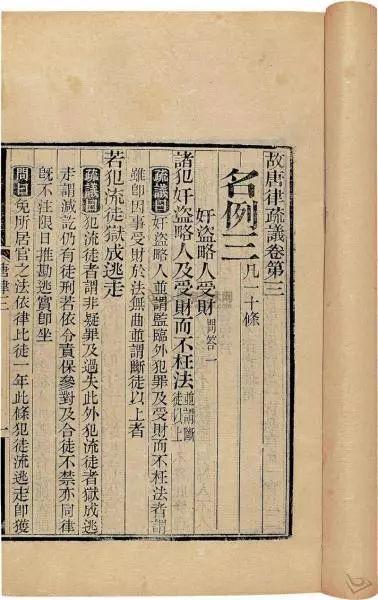 故唐律疏議卷第三
名例三凡一十條
奸盜略人受財問答一
諸犯奸盜略人及受財而不枉法並謂斷徒以上
疏議曰奸盜略人並謂監臨外犯罪及受財而不枉法者謂
雖即因事受財於法無曲並謂斷徒以上者
若犯流徒獄成逃走
疏議曰犯流徒者謂非疑罪及過失此外犯流徒者獄成逃
走謂減訖仍有徒刑若依令責保參對及合徒不禁亦同律
既不注限日推勘逃實即坐
問曰免所居官之法依律比徒一年此條犯徒流逃走即獲
唐律三
一